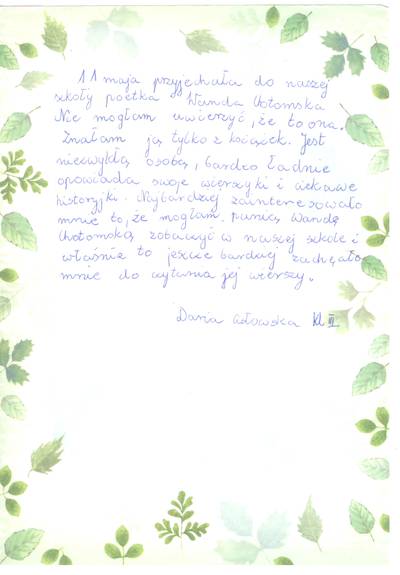 11 maja przyjechała do naszej
szkoły poetka Wanda Chotomska
Nie mogłam uwierzyć, że to ona.
Znałam ją tylko z książek. Jest
niezwykłą osobą, bardzo ładnie
opowiada swoje wierszyki i ciekawe
historyjki. Najbardziej zainteresowało
mnie to, że mogłam panią Wandę
Chotomską zobaczyć w naszej szkole i
właśnie to jeszcze bardziej zachęciło
mnie do czytania jej wierszy.
Daria Kl III